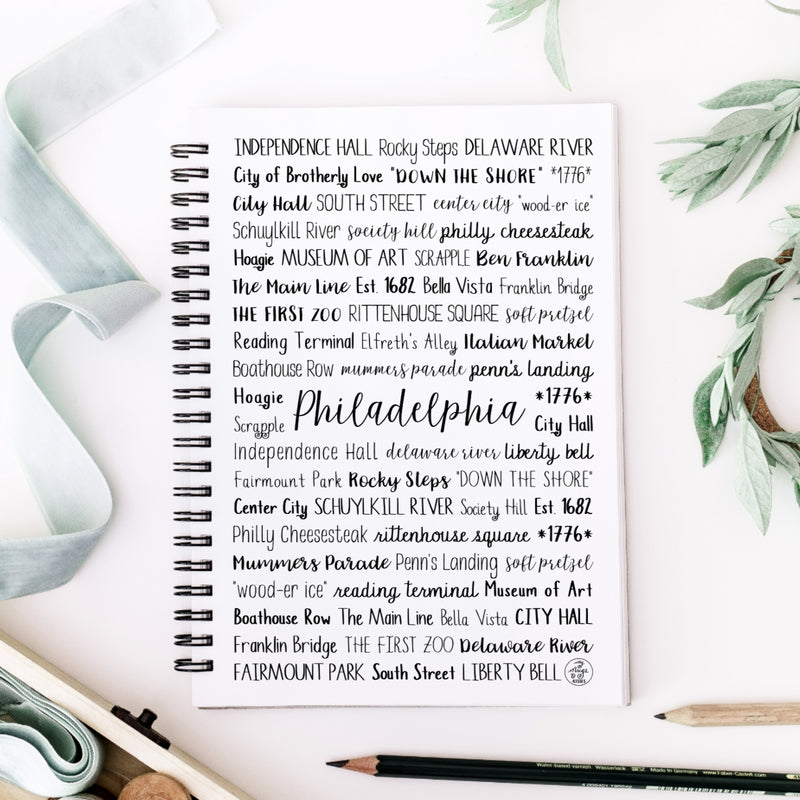 INDEPENDENCE HALL Rocky Steps DELAWARE RIVER
City of Brotherly Love "DOWN THE SHORE" *1776*
City Hall SOUTH STREET center city "wood-er ice"
Schuylkill River society hill philly cheesesteak
Hoagie MUSEUM OF ART SCRAPPLE Ben Franklin
The Main Line Est. 1682 Bella Vista Franklin Bridge
THE FIRST ZOO RITTENHOUSE SQUARE soft pretzel
Reading Terminal Elfreth's Alley Italian Market
Boathouse Row mummers parade penn's landing
Hoagie Philadelphia *1776*
Scrapple City Hall
Independence Hall delaware river liberty bell
Fairmount Park Rocky Steps "DOWN THE SHORE"
Center City SCHUYLKILL RIVER Society Hill Est. 1682
Philly Cheesesteak rittenhouse square *1776*
Mummers Parade Penn's Landing soft pretzel
"wood-er ice" reading terminal Museum of Art
Boathouse Row The Main Line Bella Vista CITY HALL
Franklin Bridge THE FIRST ZOO Delaware River
FAIRMOUNT PARK South Street LIBERTY BELL
Made in Germany www.Faber-Castell.com